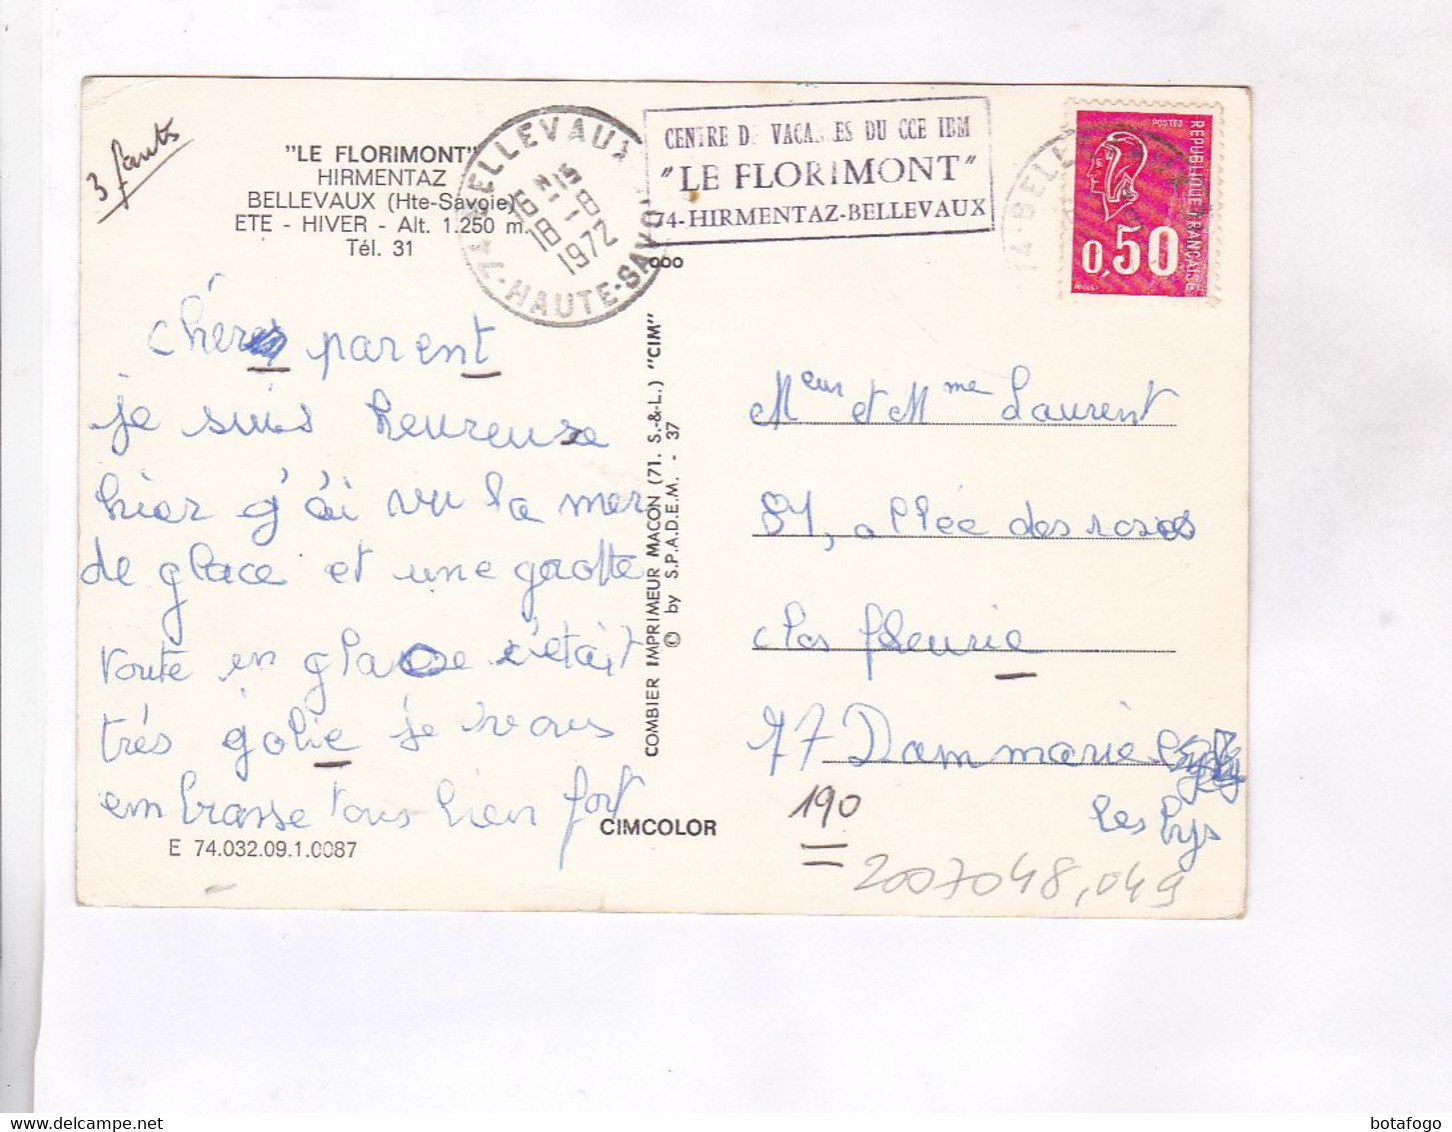 3 fauts
"LE FLORIMONT"
HIRMENTAZ
BELLEVAUX (Hte-Savoie)
ETE - HIVER - Alt. 1.250 m.
Tél. 31
74-BELLEVAUX
HAUTE-SAVOIE
16 H 15
18-8
1972
CENTRE DE VACANCES DU CCE IBM
"LE FLORIMONT"
74-HIRMENTAZ-BELLEVAUX
ooo
POSTES
REPUBLIQUE FRANCAISE
0,50
74-BELLE
chérs parent
je suis heureuse
hier g'ái vu la mer
de glace et une grotte
toute en glace c'était
trés golie je vous
embrasse tous bien fort
E 74.032.09.1.0087
COMBIER IMPRIMEUR MACON (71. S.-&-L.) "CIM"
© by S.P.A.D.E.M. - 37
CIMCOLOR
Meur et Mme Laurent
81, allée des roses
clos fleurie
77 Dammarie
les lys
190
2007048,049
botafogo